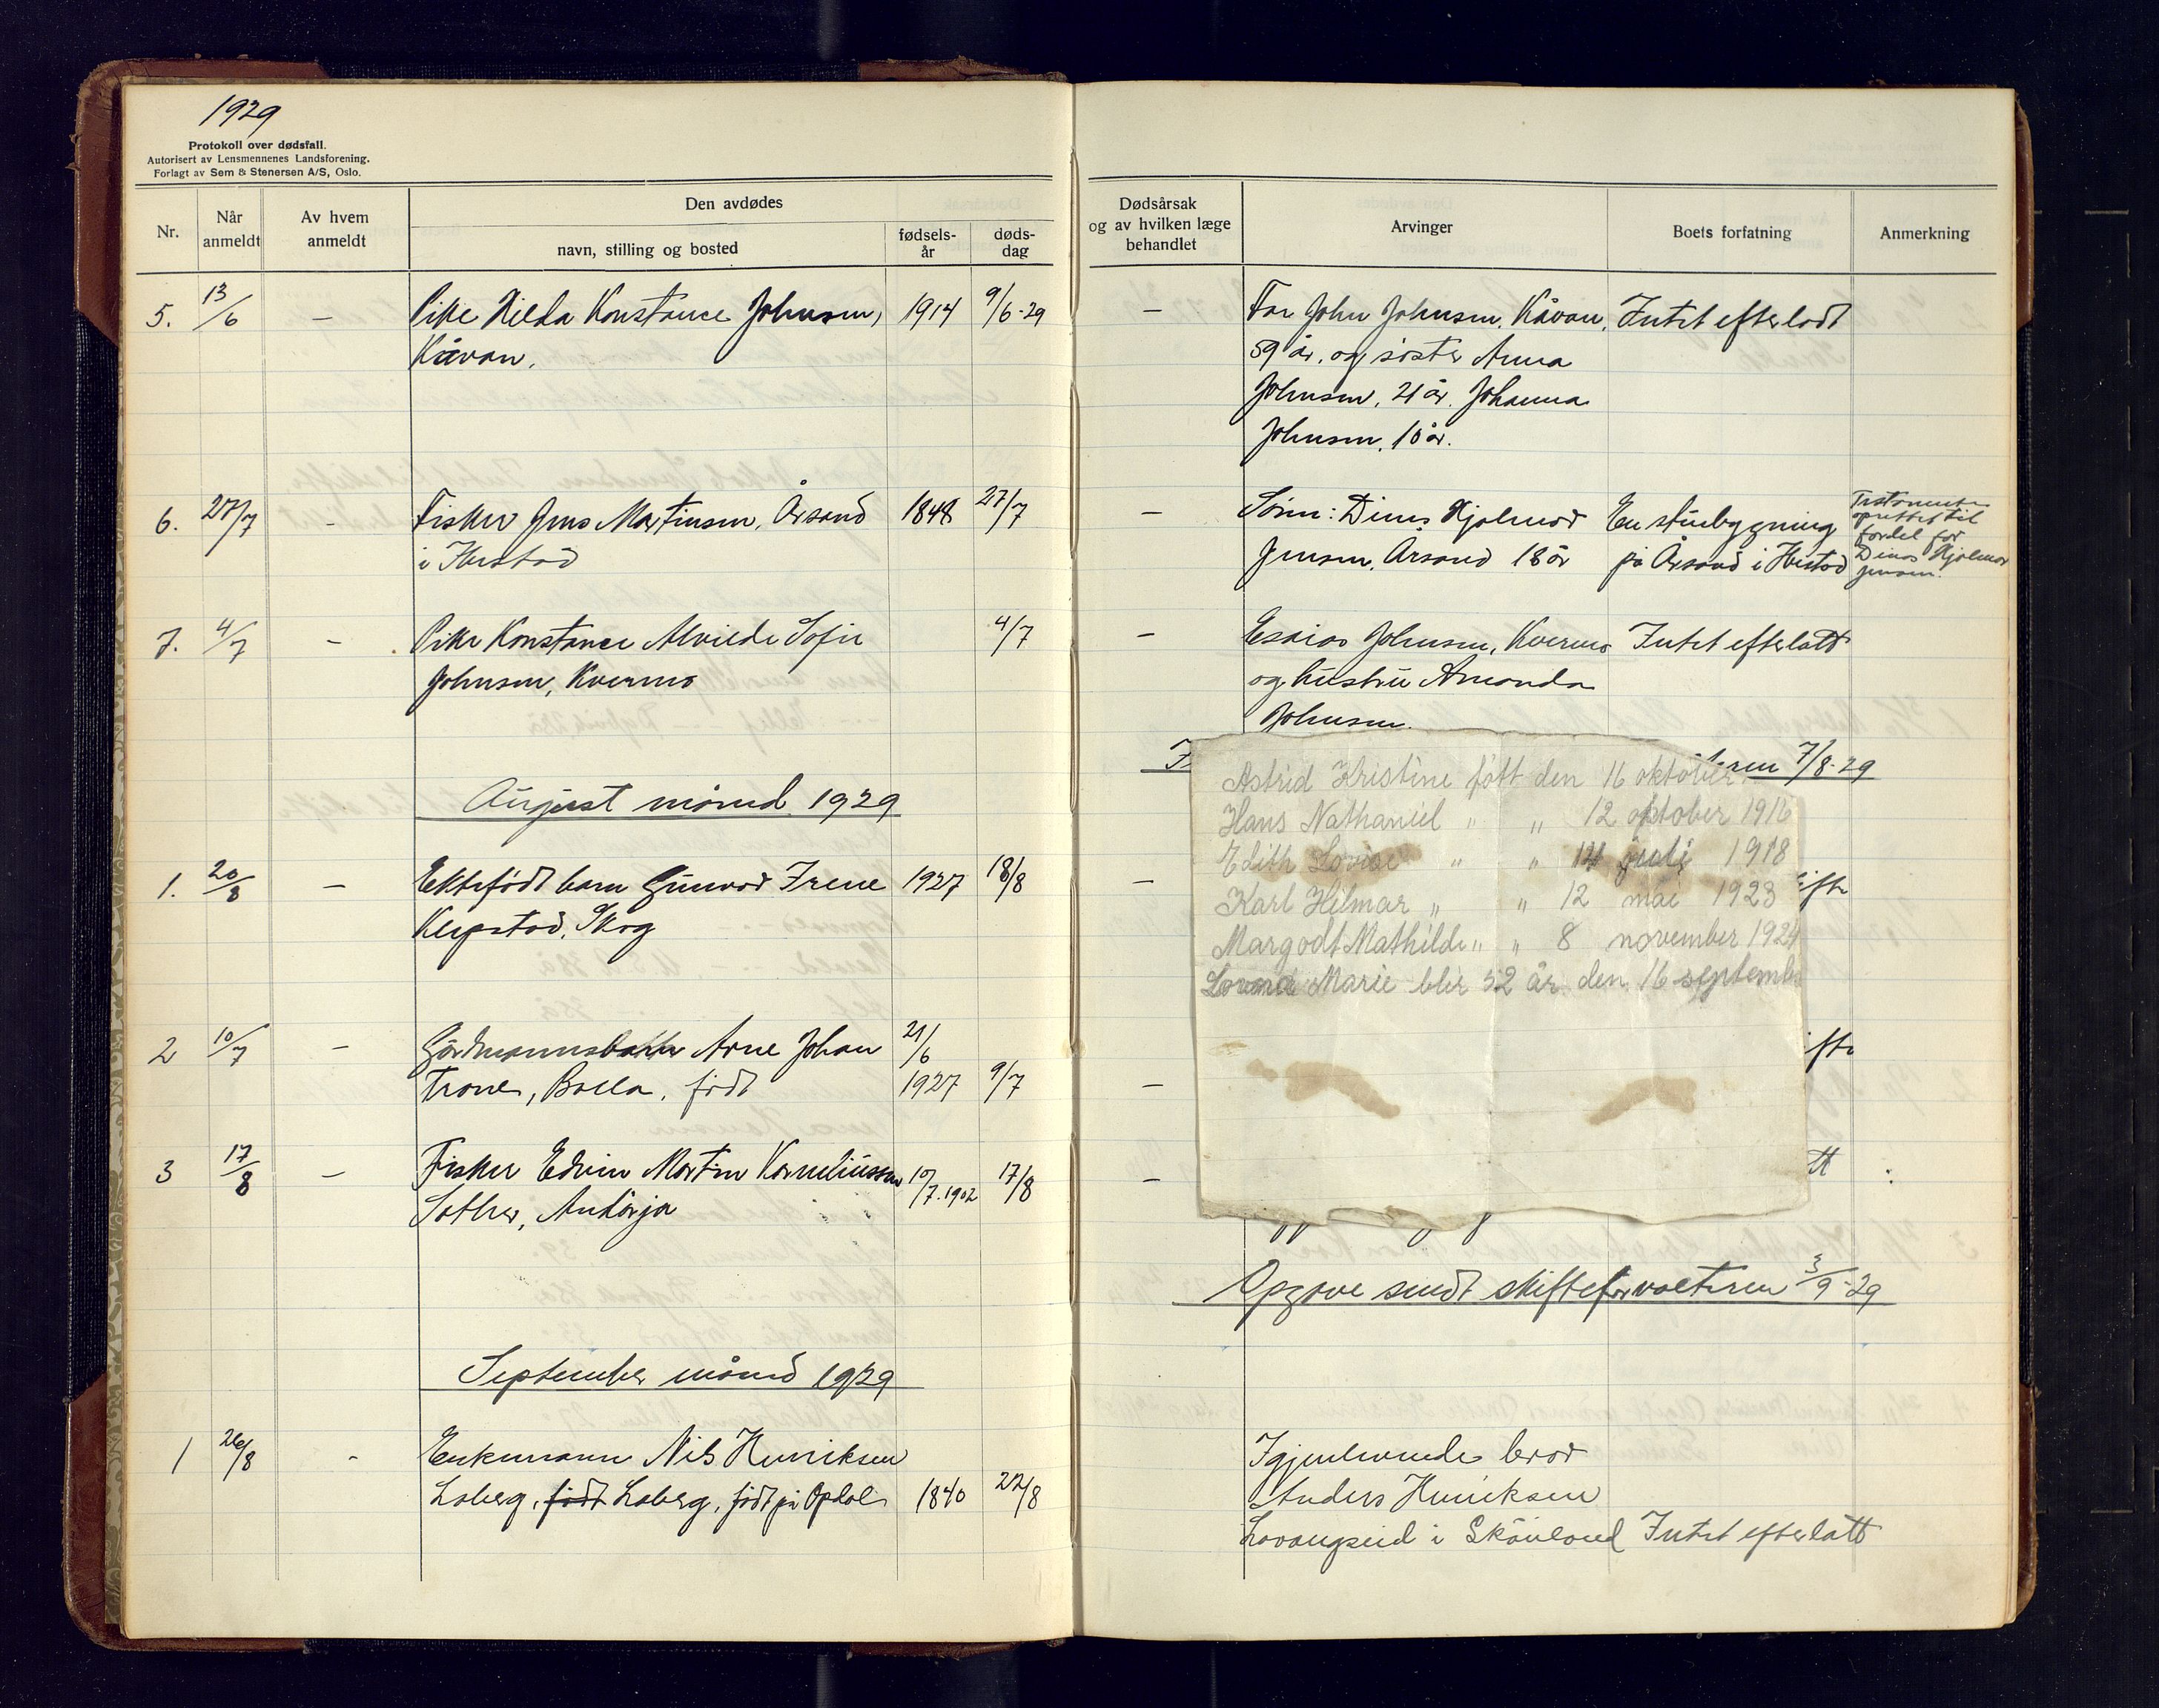 1929
Protokoll over dødsfall.
Autorisert av Lensmennenes Landsforening.
Forlagt av Sem & Stenersen A/S, Oslo.
Nr.
Når anmeldt
Av hvem anmeldt
Den avdødes
navn, stilling og bosted
fødsels-år
døds-dag
5. 13/6 — Pike Hilda Konstance Johnsen, 1914 9/6-29
Kåvan.
6. 27/7 - Fisker Jens Martinsen, Årsand 1848 27/7
i Ibestad
7. 4/7 — Pike Konstance Alvilde Sofie 4/7
Johnsen, Kvernmo
August måned 1929
1. 20/8 — Ektefødt barn Gunvor Irene 1927 18/8
Keipstad, Skog
2 10/7 — Gårdmanns Arne Johan 21/6
Trones, Bolla, født 1927 9/7
3 17/8 — Fisker Edvin Martin Korneliussen 10/7.1902 17/8
Sother, Andørja
September måned 1929
1 26/8 - Enkemann Nils Henriksen
Laberg, født Laberg, født på Opdal 1840 22/8
Dødsårsak
og av hvilken læge
behandlet
Arvinger
Boets forfatning
Anmerkning
— Far John Johnsen, Kåvan, Intet efterladt
59 år, og søster Anna
Johnsen, 21 år. Johanna
Johnsen, 10 år.
— Sønn: Dines Hjalmar En stuebygning
Jensen, Årsand 18 år på Årsand i Ibestad
Testamente
oprettet til
fordel for
Dines Hjalmar
Jensen.
— Esaias Johnsen, Kvernmo Intet efterlatt
og hustru Amanda
Johnsen.
7/8-29
Astrid Kristine født den 16 oktober
Hans Nathaniel " " 12 oktober 1916
Edith Lovise " " 14 juli 1918
Karl Hilmar " " 12 mai 1923
Margodt Mathilde " " 8 november 1924
Marie blir 52 år den 16 septemb
—
ifte
—
ifte
—
tt
Opgave sendt skifteforvalteren 3/9-29
Igjenlevende bror
Anders Henriksen
Lavangseid i Skånland Intet efterlatt